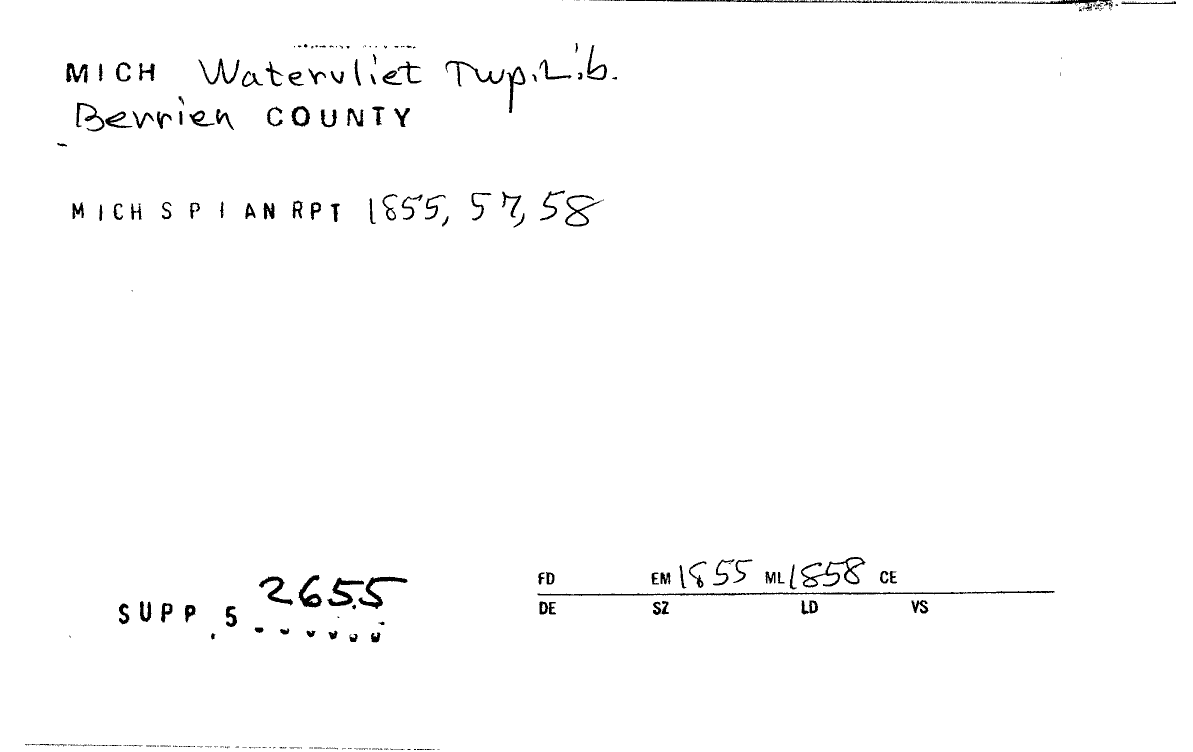 MICH Watervliet Twp. Lib.
Berrien COUNTY
MICH S P I AN RPT 1855, 57, 58
SUPP 5 2655
FD EM 1855 ML 1858 CE
DE SZ LD VS